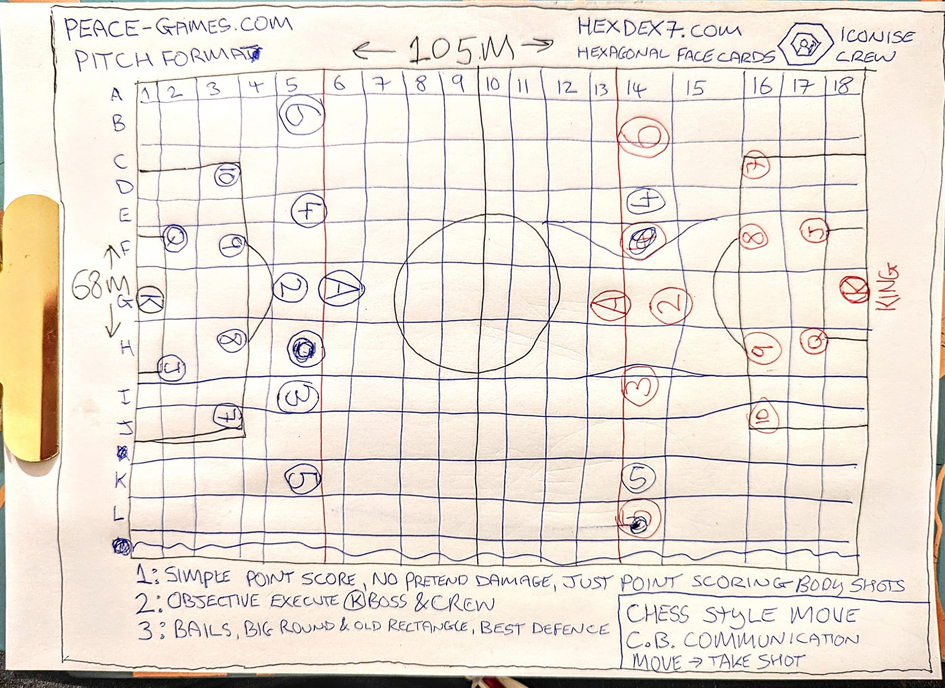 PEACE-GAMES.COM
PITCH FORMAT
← 105M →
HEXDEX7.COM
HEXAGONAL FACE CARDS
ICONISE
CREW
1 2 3 4 5 6 7 8 9 10 11 12 13 14 15 16 17 18
A
B 6 6
C 10 7
D
E 4 4
F Q 9 8 J
68M
G K 2 A A 2 K
KING
H 8 9 Q
J
I 3 3
J 7 10
K 5 5
L
1: SIMPLE POINT SCORE, NO PRETEND DAMAGE, JUST POINT SCORING BODY SHOTS
2: OBJECTIVE EXECUTE K BOSS & CREW
3: BAILS, BIG ROUND & OLD RECTANGLE, BEST DEFENCE
CHESS STYLE MOVE
C.B. COMMUNICATION
MOVE → TAKE SHOT